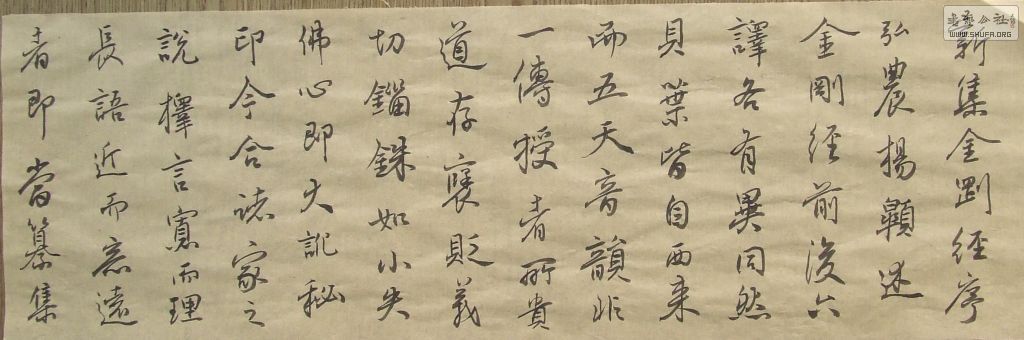 新集金剛經序
弘農楊顗述
金剛經前後六
譯各有異同然
貝葉皆自西來
而五天音韻非
一傳授者所貴
道存褒貶義
切錙銖如小失
佛心即大訛秘
印今合諸家之
說擇言寡而理
長語近而意遠
者即當纂集
WWW.SHUFA.ORG